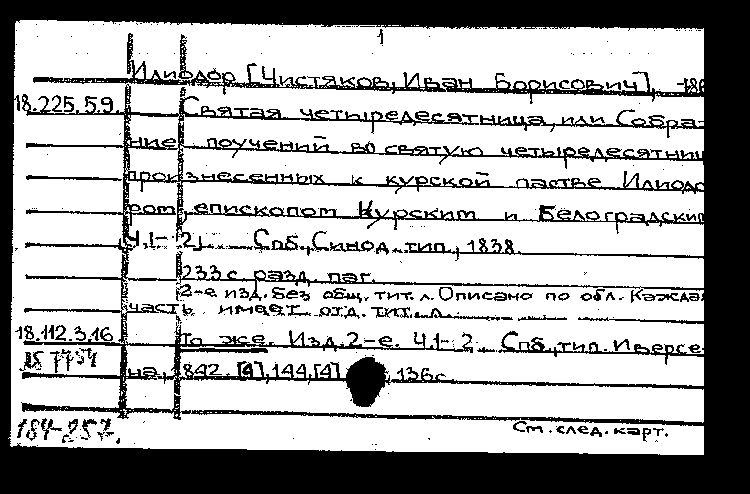 1
Илиодор [Чистяков, Иван Борисович], -186
18.225.5.9. Святая четыредесятница, или Собра-
ние поучений во святую четыредесятниц
произнесенных к курской пастве Илиодо
ром, епископом Курским и Белоградским
Ч.1-2. Спб., Синод. тип., 1838.
233 с. разд. паг.
2-е изд. без общ. тит. л. Описано по обл. Каждая
часть имеет отд. тит. л.
18.112.3.16 То же. Изд. 2-е. Ч.1-2. Спб., тип. Иверсе-
на, 1842. [4], 144, [4] , 136 с.
184-257.
См. след. карт.